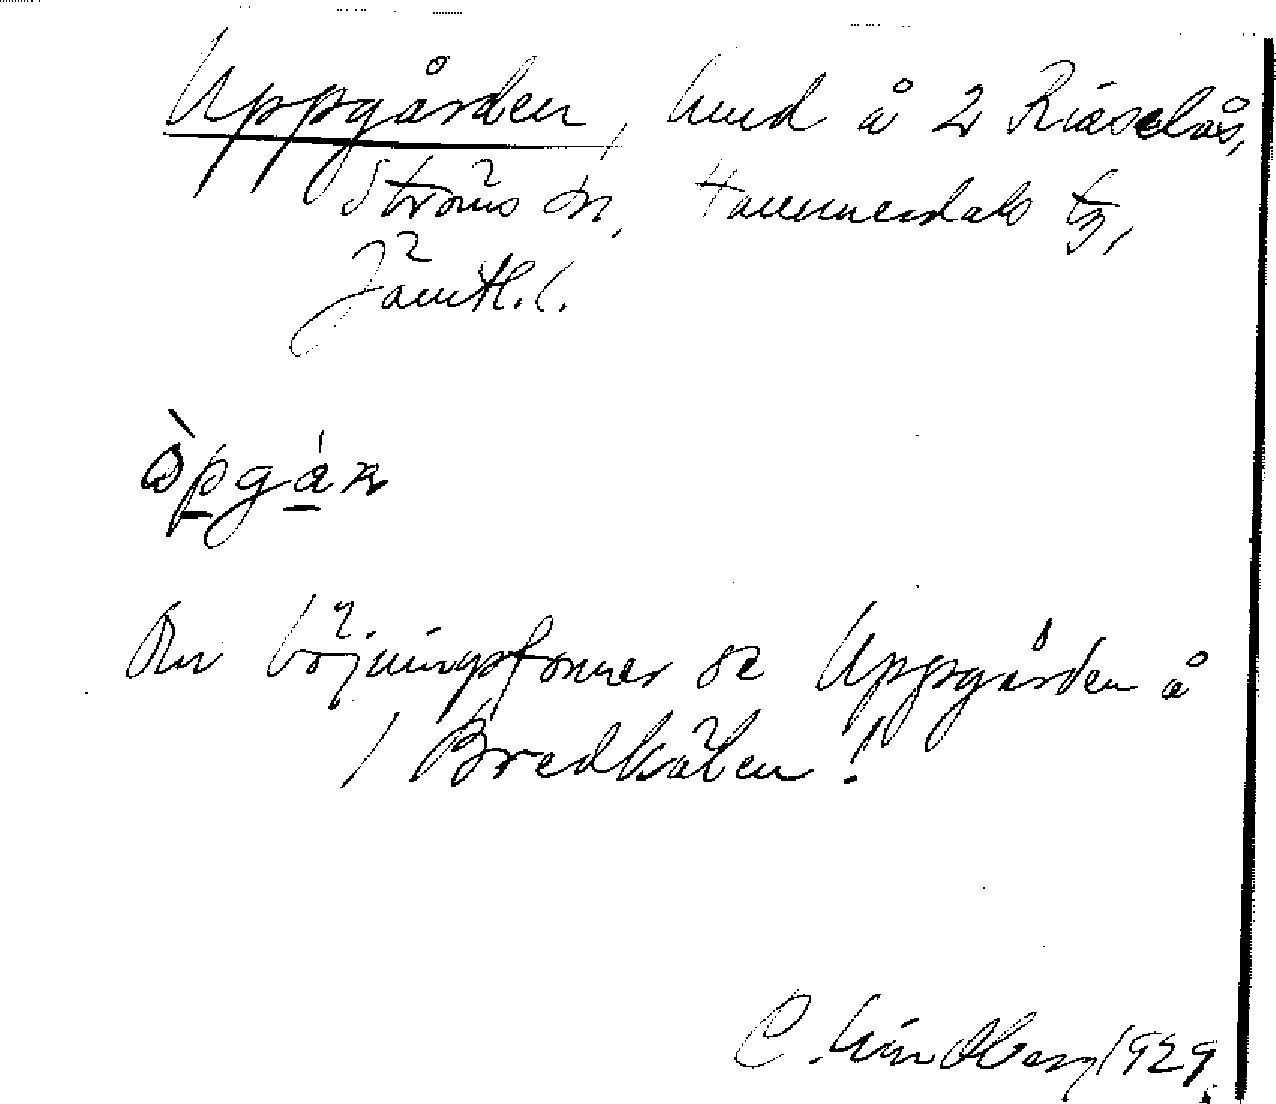 Uppgården, hmd å 2 Risselås,
Ströms sn, Hammerdals tg,
Jämtl. l.
òpgán
Om böjningsformer se Uppgården å
1 Bredkälen!
C. Lindberg 1929